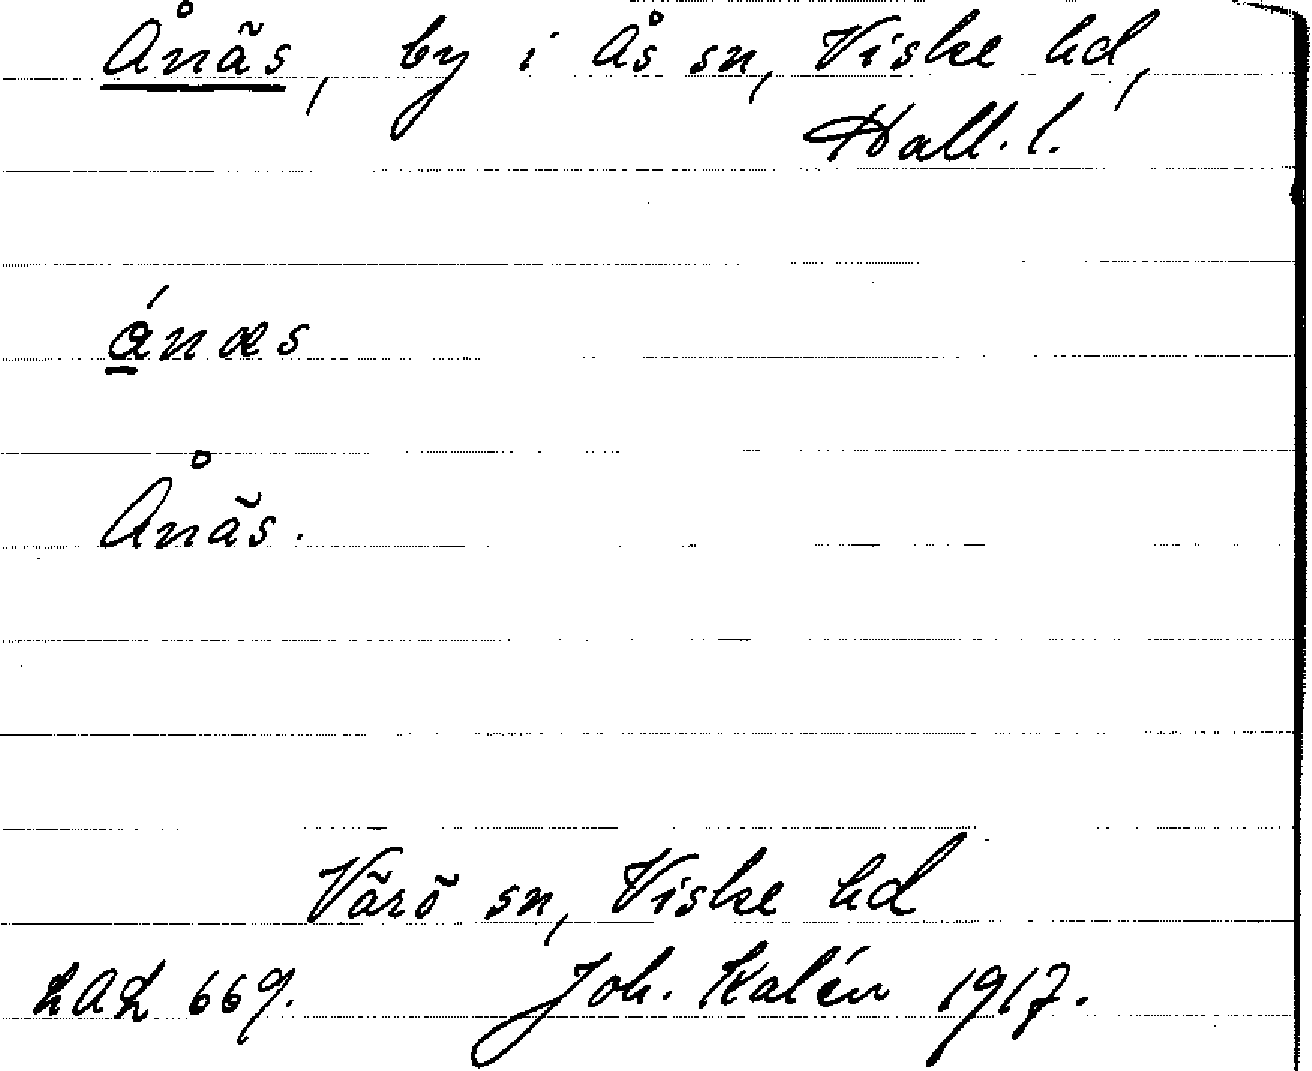 Ånäs, by i Ås sn, Viske hd,
Hall. l.
á̲næs
Ånäs.
Värö sn, Viske hd
LAL 669. Joh. Kalén 1917.